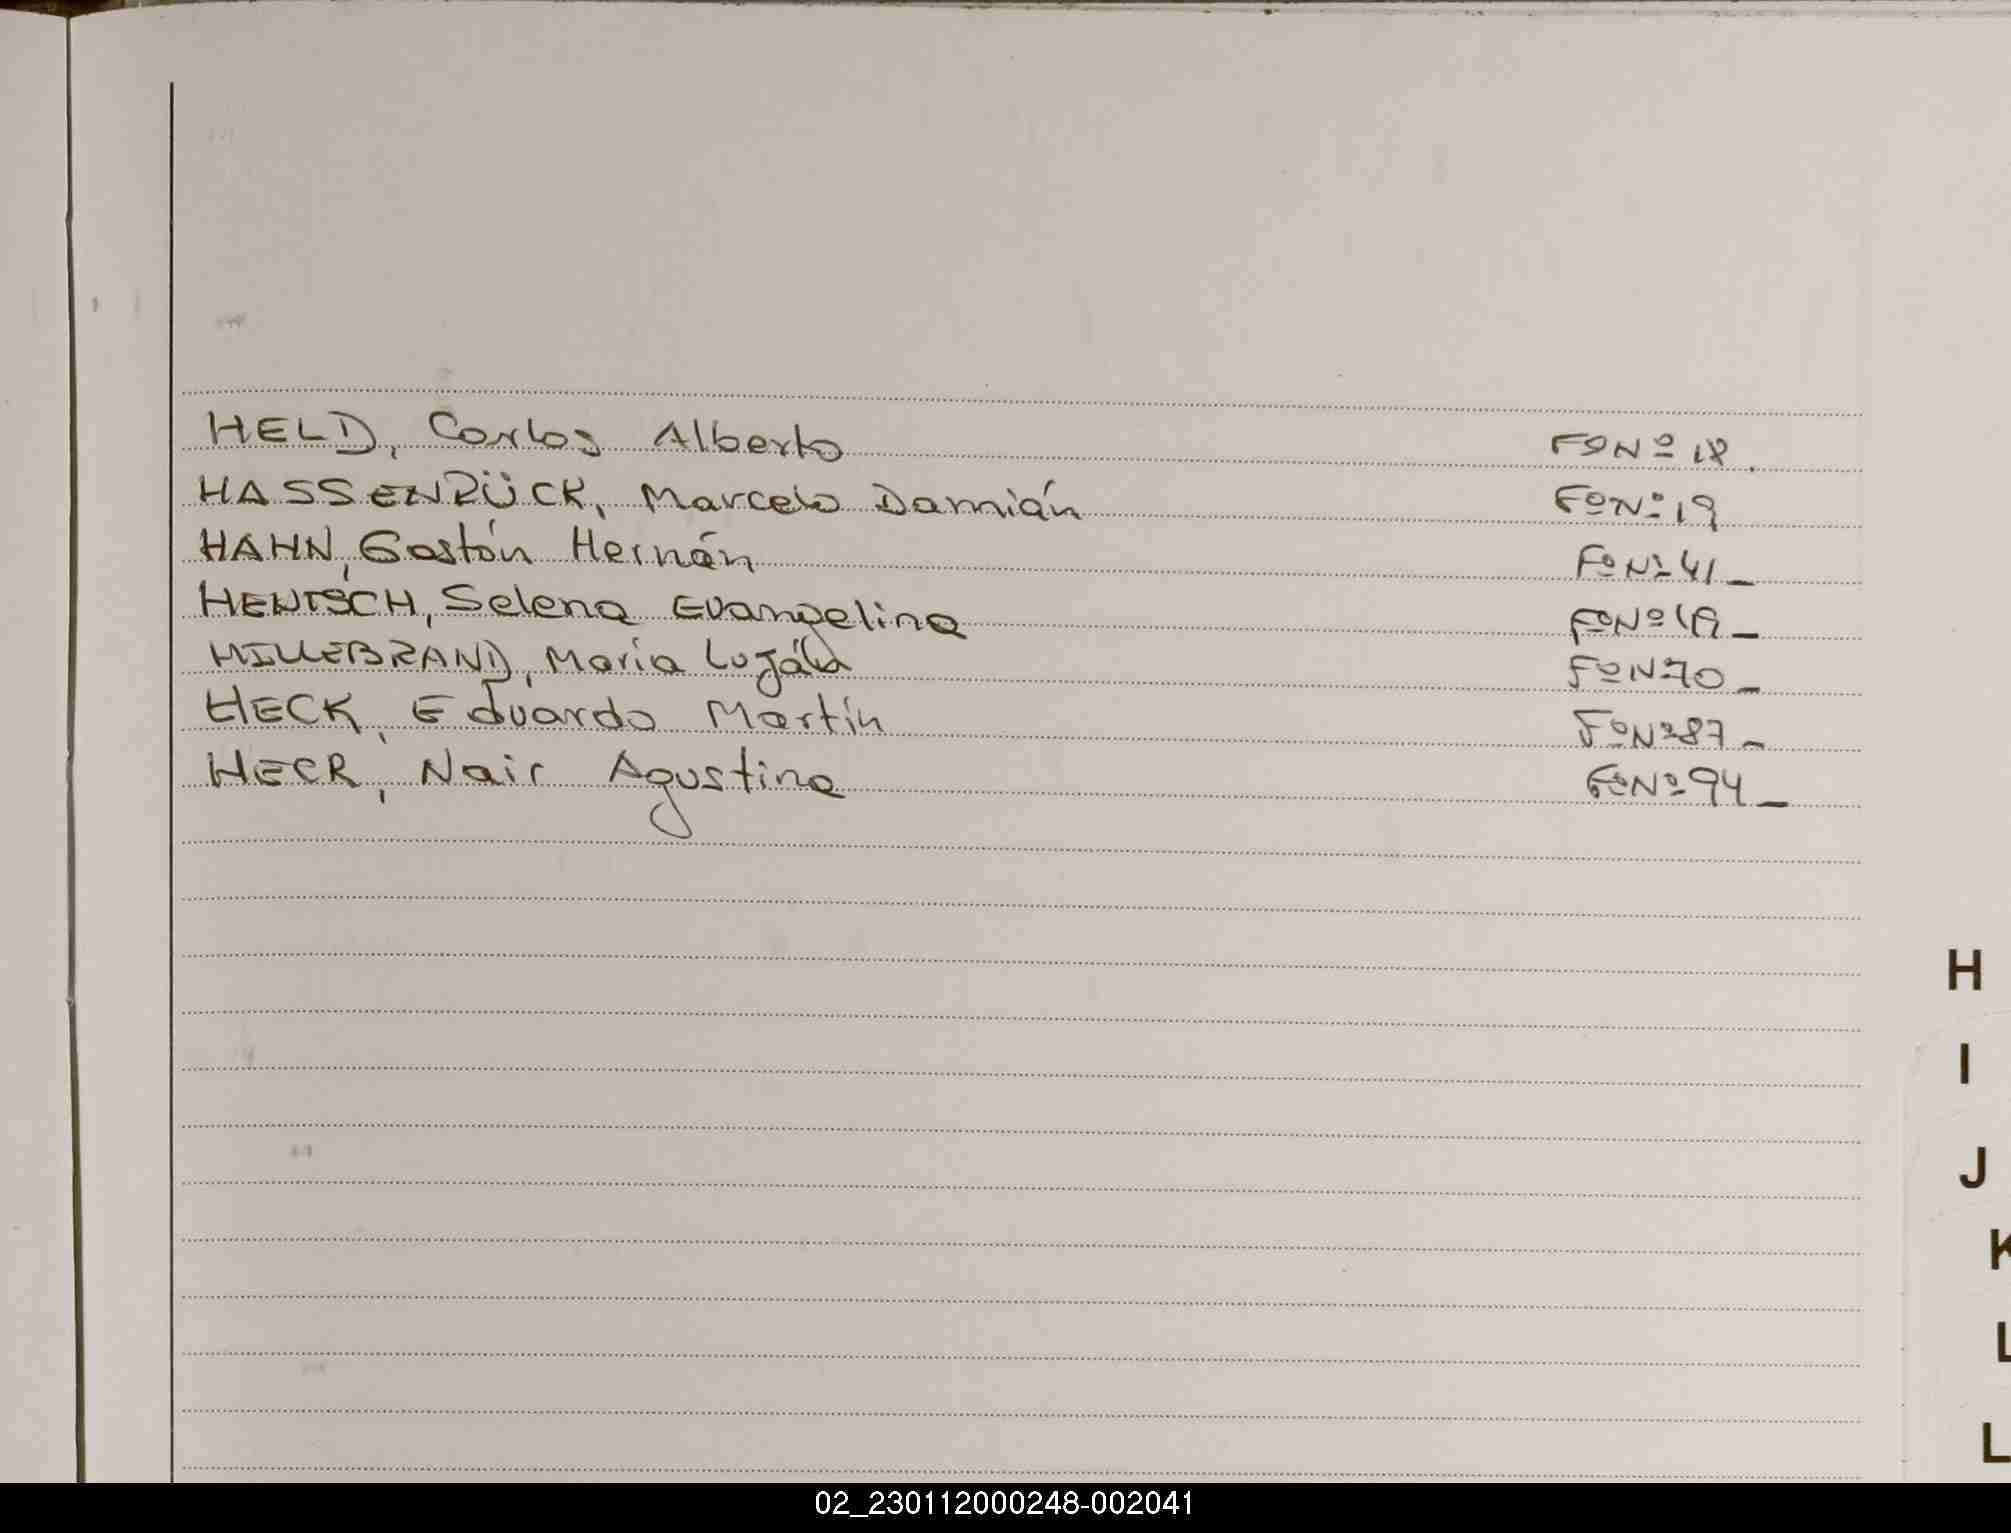 HELD, Carlos Alberto Fº Nº 18.
HASSENRÜCK, Marcelo Damián Fº Nº 19
HAHN, Gastón Hernán Fº Nº 41_
HENTSCH, Selena Evangelina Fº Nº 49_
HILLEBRAND, María Luján Fº Nº 70_
HECK, Eduardo Martín Fº Nº 87_
HECK, Nair Agustina Fº Nº 94_
H
I
J
K
L
L
02_230112000248-002041